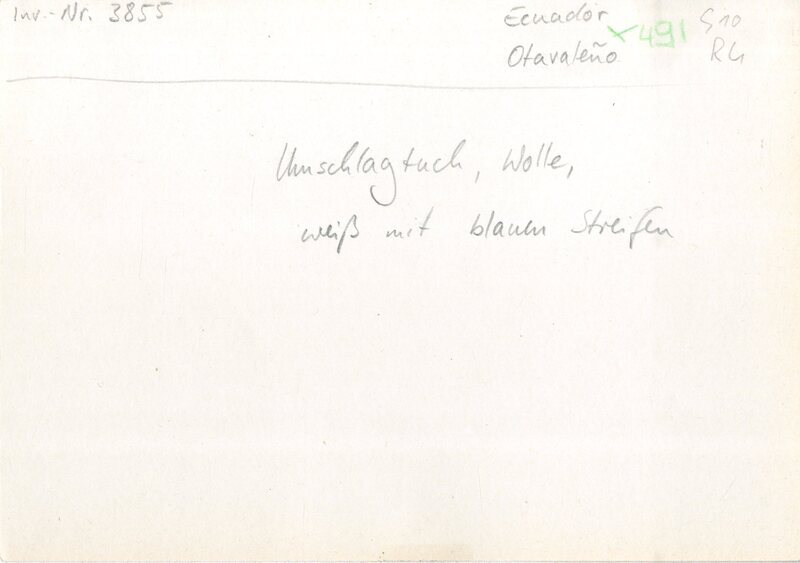 Inv.-Nr. 3855
Ecuador
x 491
Otavaleño
Umschlagtuch, Wolle,
weiß mit blauen Streifen